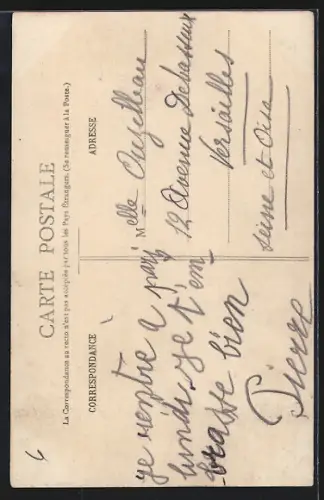 CARTE POSTALE
La Correspondance au recto n'est pas acceptée par tous les Pays étrangers. (Se renseigner à la Poste.)
CORRESPONDANCE
ADRESSE
je rentre a pari
lundi. Je t'em
brasse bien
Pierre
Melle
12 Avenue
Versailles
Seine et Oise